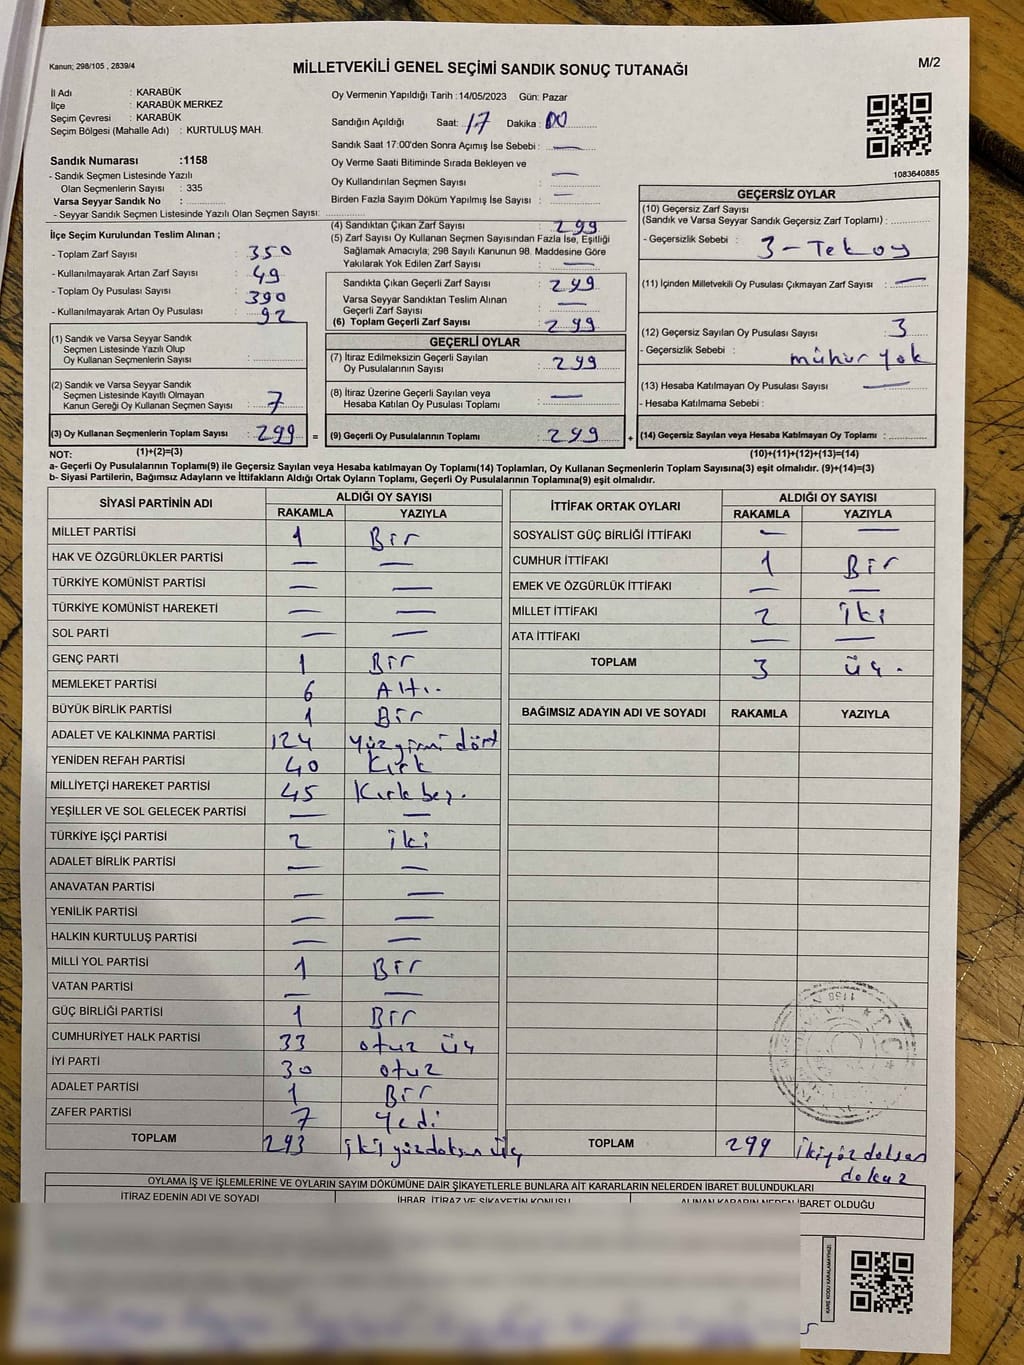 Kanun; 298/105 , 2839/4
MİLLETVEKİLİ GENEL SEÇİMİ SANDIK SONUÇ TUTANAĞI
M/2
İl Adı : KARABÜK
İlçe : KARABÜK MERKEZ
Seçim Çevresi : KARABÜK
Seçim Bölgesi (Mahalle Adı) : KURTULUŞ MAH.
Sandık Numarası :1158
- Sandık Seçmen Listesinde Yazılı
Olan Seçmenlerin Sayısı : 335
Varsa Seyyar Sandık No :
- Seyyar Sandık Seçmen Listesinde Yazılı Olan Seçmen Sayısı:
İlçe Seçim Kurulundan Teslim Alınan ;
- Toplam Zarf Sayısı : 350
- Kullanılmayarak Artan Zarf Sayısı : 49
- Toplam Oy Pusulası Sayısı : 390
- Kullanılmayarak Artan Oy Pusulası : 92
(1) Sandık ve Varsa Seyyar Sandık
Seçmen Listesinde Yazılı Olup
Oy Kullanan Seçmenlerin Sayısı :
(2) Sandık ve Varsa Seyyar Sandık
Seçmen Listesinde Kayıtlı Olmayan
Kanun Gereği Oy Kullanan Seçmen Sayısı : 7
(3) Oy Kullanan Seçmenlerin Toplam Sayısı : 299 =
(1)+(2)=(3)
Oy Vermenin Yapıldığı Tarih :14/05/2023 Gün: Pazar
Sandığın Açıldığı Saat: 17 Dakika : 00
Sandık Saat 17:00'den Sonra Açımış İse Sebebi : —
Oy Verme Saati Bitiminde Sırada Bekleyen ve
Oy Kullandırılan Seçmen Sayısı : —
Birden Fazla Sayım Döküm Yapılmış İse Sayısı : —
(4) Sandıktan Çıkan Zarf Sayısı : 299
(5) Zarf Sayısı Oy Kullanan Seçmen Sayısından Fazla İse, Eşitliği
Sağlamak Amacıyla; 298 Sayılı Kanunun 98. Maddesine Göre
Yakılarak Yok Edilen Zarf Sayısı : —
Sandıkta Çıkan Geçerli Zarf Sayısı : 299
Varsa Seyyar Sandıktan Teslim Alınan
Geçerli Zarf Sayısı : —
(6) Toplam Geçerli Zarf Sayısı : 299
GEÇERLİ OYLAR
(7) İtiraz Edilmeksizin Geçerli Sayılan
Oy Pusulalarının Sayısı : 299
(8) İtiraz Üzerine Geçerli Sayılan veya
Hesaba Katılan Oy Pusulası Toplamı : —
(9) Geçerli Oy Pusulalarının Toplamı : 299 +
1083640885
GEÇERSİZ OYLAR
(10) Geçersiz Zarf Sayısı
(Sandık ve Varsa Seyyar Sandık Geçersiz Zarf Toplamı) :
- Geçersizlik Sebebi : 3-Tek oy
(11) İçinden Milletvekili Oy Pusulası Çıkmayan Zarf Sayısı : —
(12) Geçersiz Sayılan Oy Pusulası Sayısı : 3
- Geçersizlik Sebebi : mühür yok
(13) Hesaba Katılmayan Oy Pusulası Sayısı : —
- Hesaba Katılmama Sebebi :
(14) Geçersiz Sayılan veya Hesaba Katılmayan Oy Toplamı :
(10)+(11)+(12)+(13)=(14)
NOT:
a- Geçerli Oy Pusulalarının Toplamı(9) ile Geçersiz Sayılan veya Hesaba katılmayan Oy Toplamı(14) Toplamları, Oy Kullanan Seçmenlerin Toplam Sayısına(3) eşit olmalıdır. (9)+(14)=(3)
b- Siyasi Partilerin, Bağımsız Adayların ve İttifakların Aldığı Ortak Oyların Toplamı, Geçerli Oy Pusulalarının Toplamına(9) eşit olmalıdır.
SİYASİ PARTİNİN ADI ALDIĞI OY SAYISI
RAKAMLA YAZIYLA
MİLLET PARTİSİ 1 Bir
HAK VE ÖZGÜRLÜKLER PARTİSİ — —
TÜRKİYE KOMÜNİST PARTİSİ — —
TÜRKİYE KOMÜNİST HAREKETİ — —
SOL PARTİ — —
GENÇ PARTİ 1 Bir
MEMLEKET PARTİSİ 6 Altı.
BÜYÜK BİRLİK PARTİSİ 1 Bir
ADALET VE KALKINMA PARTİSİ 124 yüzyirmi dört
YENİDEN REFAH PARTİSİ 40 Kırk
MİLLİYETÇİ HAREKET PARTİSİ 45 Kırk beş.
YEŞİLLER VE SOL GELECEK PARTİSİ — —
TÜRKİYE İŞÇİ PARTİSİ 2 iki
ADALET BİRLİK PARTİSİ — —
ANAVATAN PARTİSİ — —
YENİLİK PARTİSİ — —
HALKIN KURTULUŞ PARTİSİ — —
MİLLİ YOL PARTİSİ 1 Bir
VATAN PARTİSİ — —
GÜÇ BİRLİĞİ PARTİSİ 1 Bir
CUMHURİYET HALK PARTİSİ 33 otuz üç
İYİ PARTİ 30 otuz
ADALET PARTİSİ 1 Bir
ZAFER PARTİSİ 7 yedi
TOPLAM 293 iki yüzdoksan üç
İTTİFAK ORTAK OYLARI ALDIĞI OY SAYISI
RAKAMLA YAZIYLA
SOSYALİST GÜÇ BİRLİĞİ İTTİFAKI — —
CUMHUR İTTİFAKI 1 Bir
EMEK VE ÖZGÜRLÜK İTTİFAKI — —
MİLLET İTTİFAKI 2 iki
ATA İTTİFAKI — —
TOPLAM 3 üç.
BAĞIMSIZ ADAYIN ADI VE SOYADI RAKAMLA YAZIYLA
1158
TOPLAM 299 ikiyüz doksan
dokuz
OYLAMA İŞ VE İŞLEMLERİNE VE OYLARIN SAYIM DÖKÜMÜNE DAİR ŞİKAYETLERLE BUNLARA AİT KARARLARIN NELERDEN İBARET BULUNDUKLARI
İTİRAZ EDENİN ADI VE SOYADI İHBAR, İTİRAZ VE ŞİKAYETİN KONUSU ALINAN KARARIN NEDEN İBARET OLDUĞU
KARE KODU KARALAMAYINIZ!